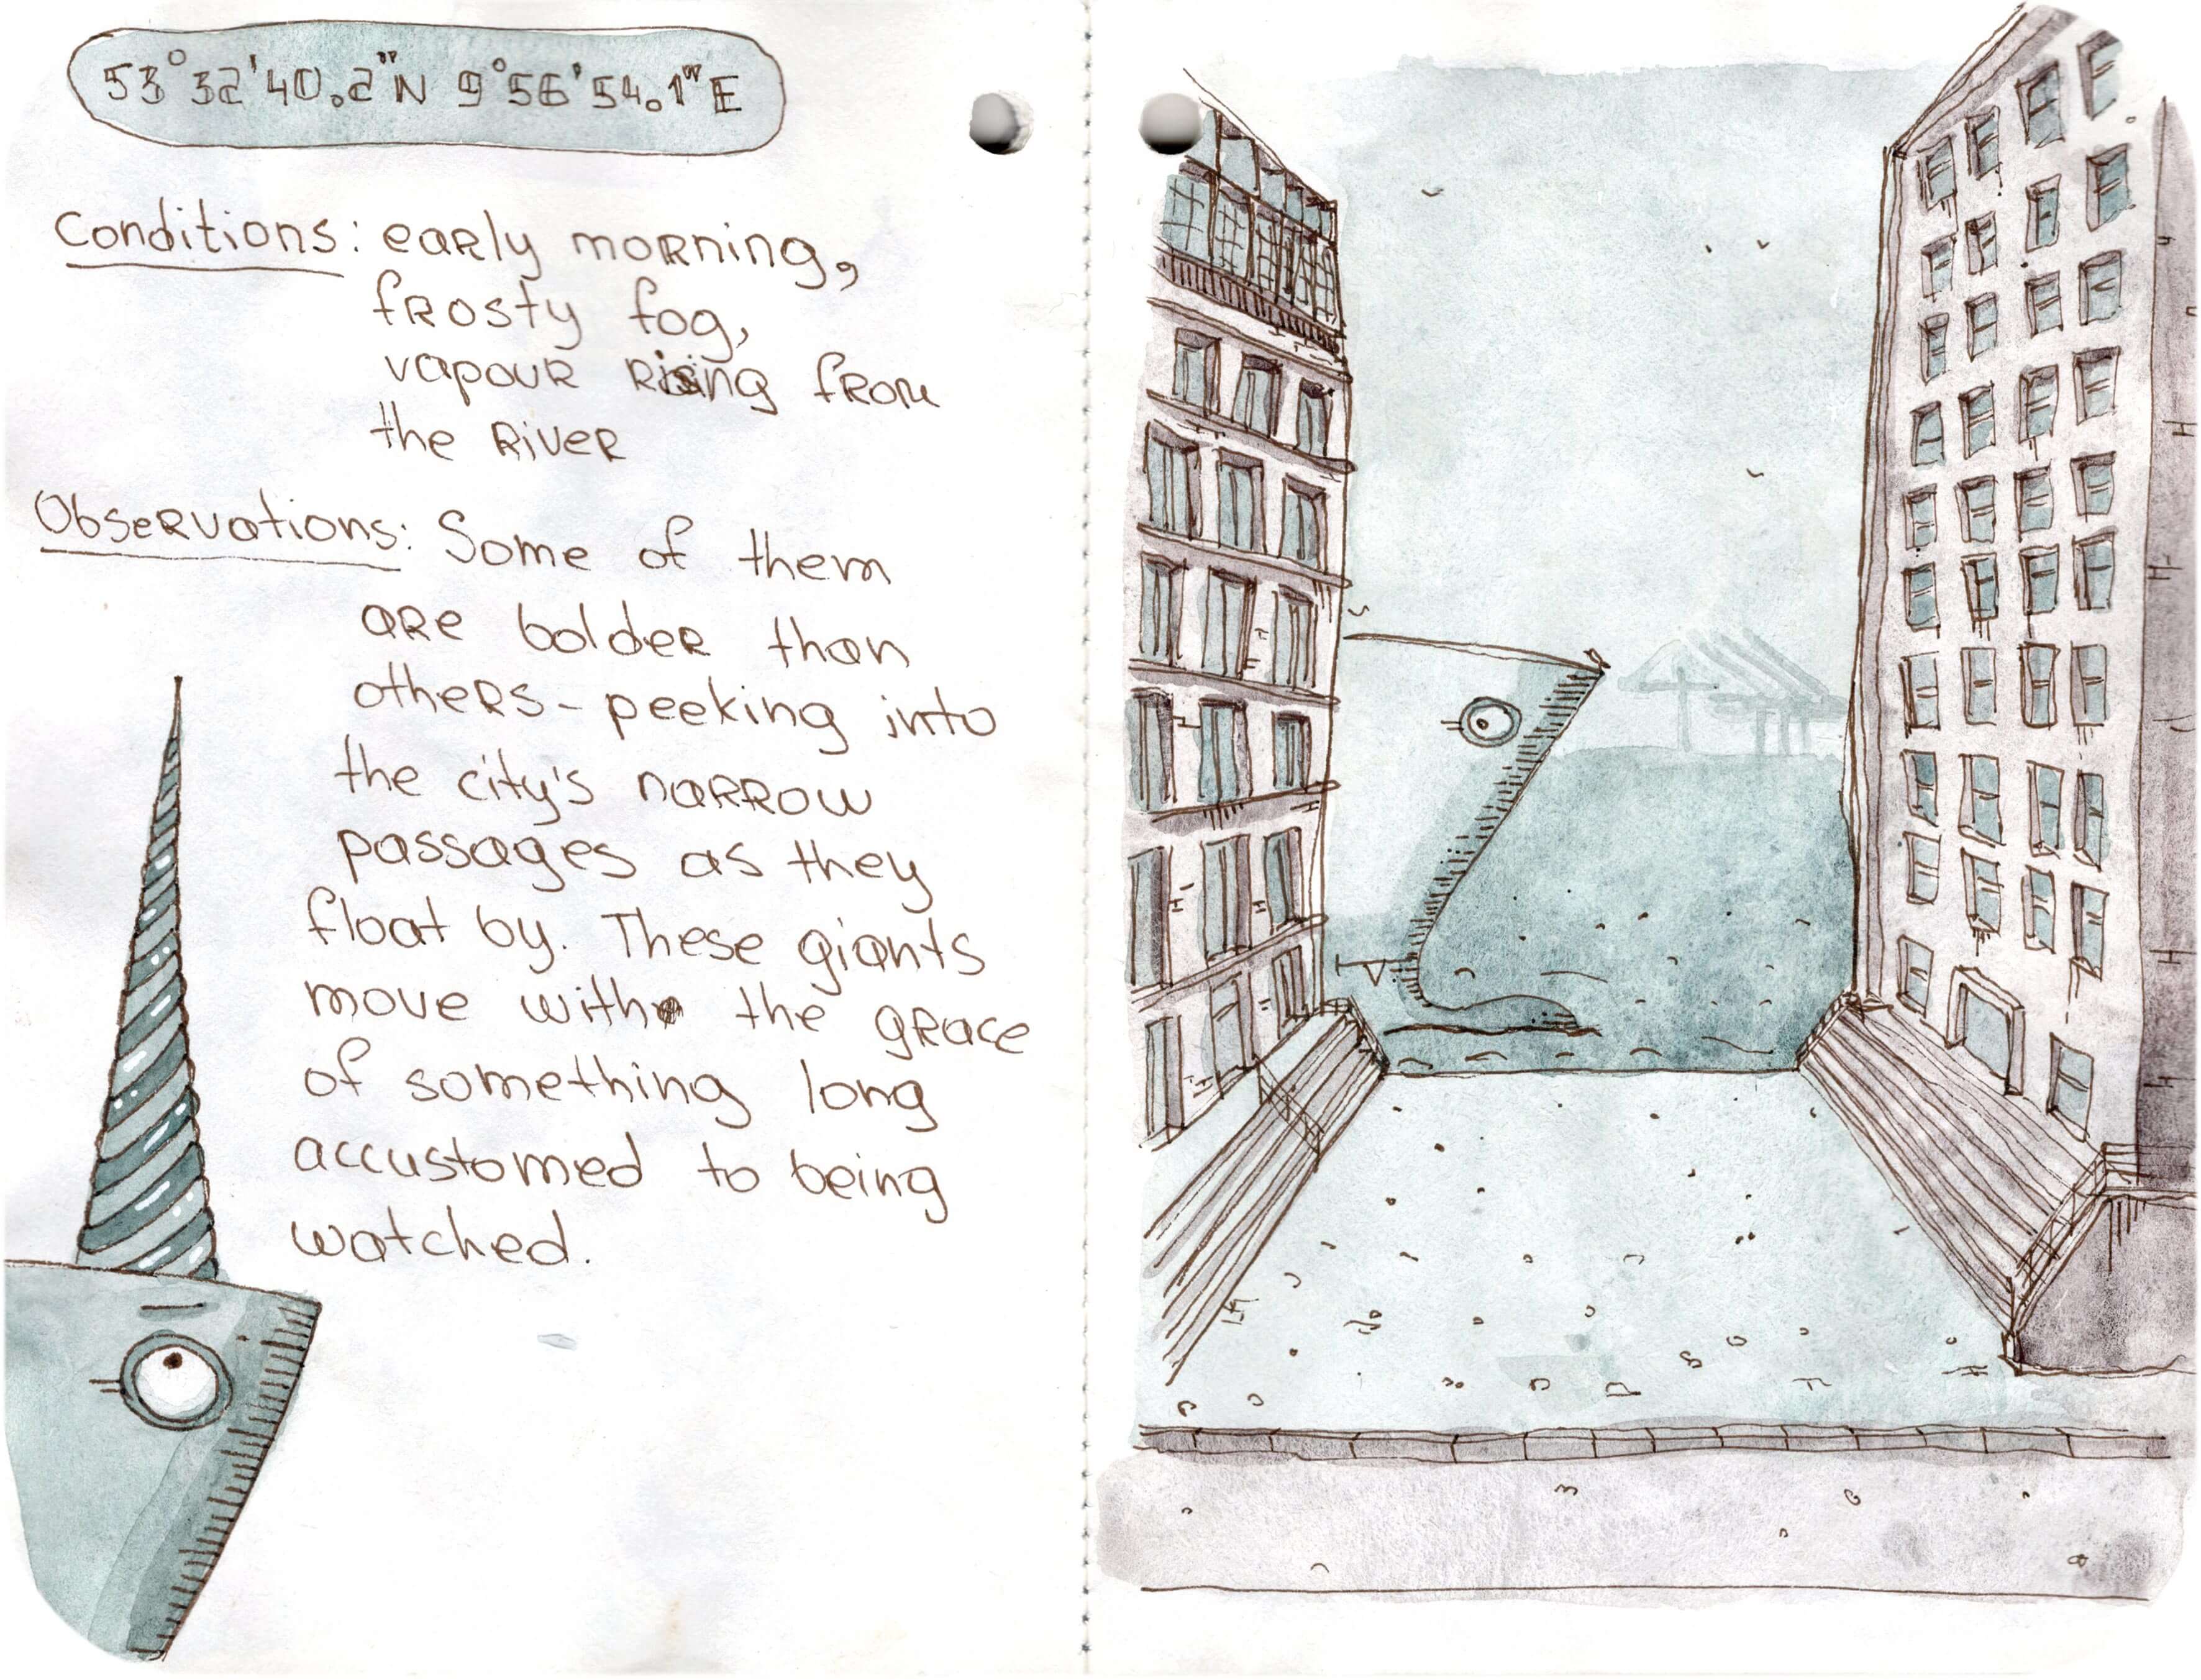 53°32'40.2"N 9°56'54.1"E
Conditions: early morning,
frosty fog,
vapour rising from
the river
Observations: Some of them
are bolder than
others - peeking into
the city's narrow
passages as they
float by. These giants
move with the grace
of something long
accustomed to being
watched.